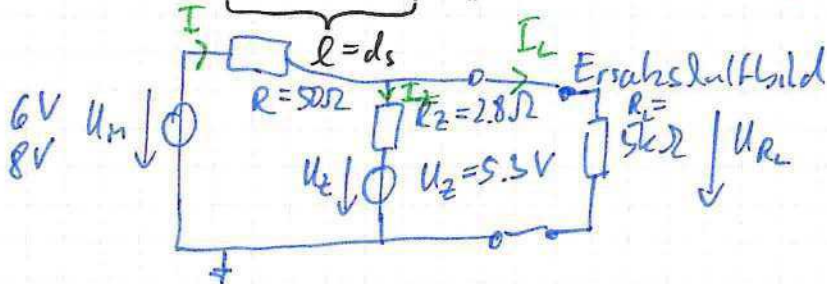 I
l = ds
IL
Ersatzschaltbild
6V
8V
UM
R = 50Ω
IZ
RZ = 2.8Ω
RL =
5kΩ
URL
UZ
UZ = 5.3V